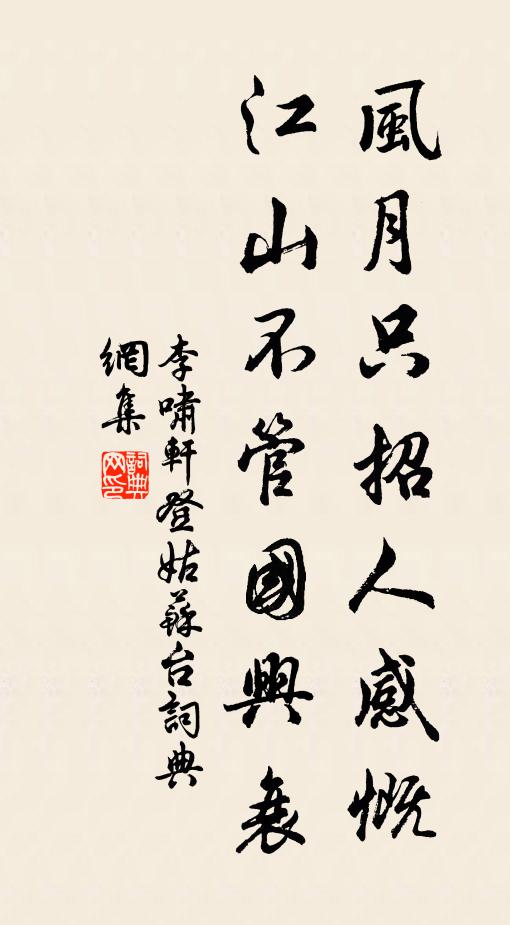 風月只招人感慨
江山不管國興衰
李嘯軒登姑蘇台詞典
網集
詞典
网印